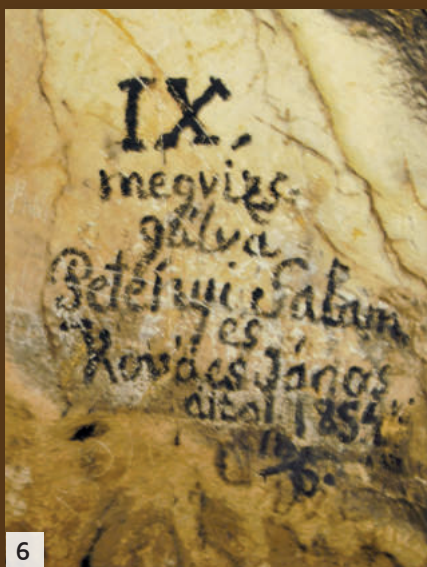 IX.
megvizs
gálva
Petényi Salam.
es
Kovács János
által 1854
6